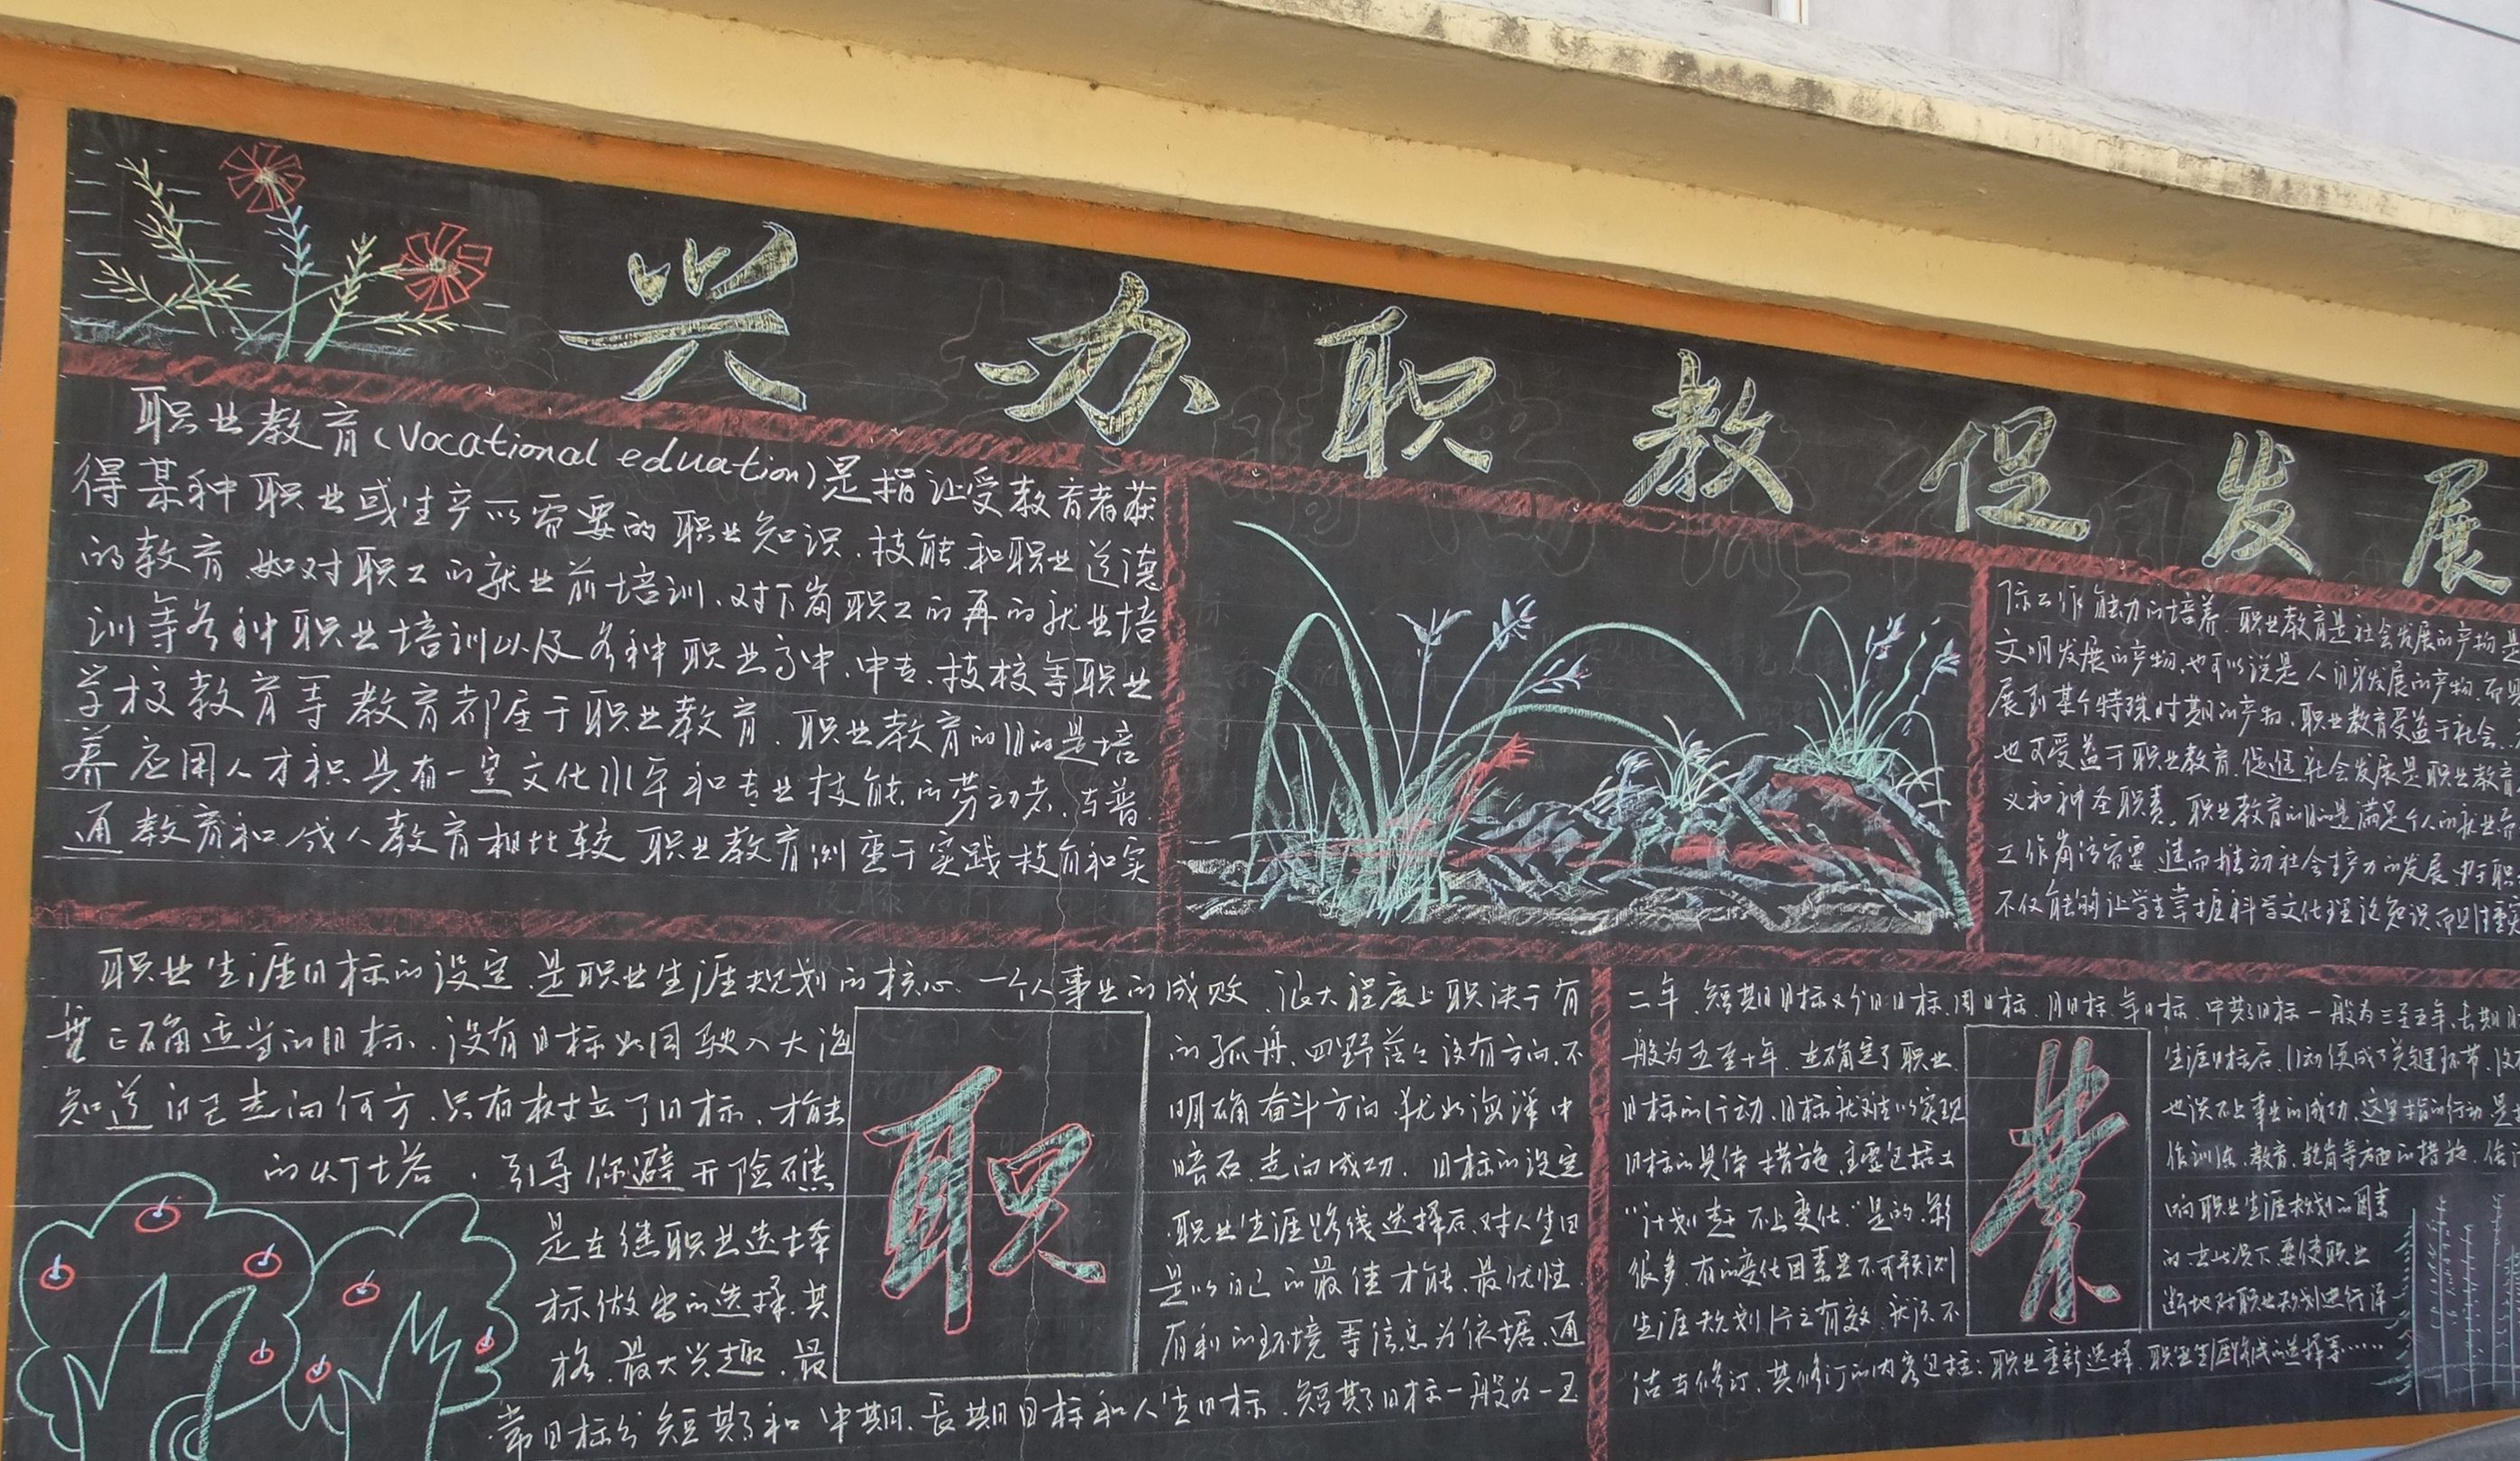 兴办职教促发展
职业教育(Vocational eduation)是指让受教育者获
得某种职业或生产所需要的职业知识、技能和职业道德
的教育.如对职工的就业前培训、对下岗职工的再的就业培
训等各种职业培训以及各种职业高中、中专、技校等职业
学校教育等教育都属于职业教育.职业教育的目的是培
养应用人才和具有一定文化水平和专业技能的劳动者.与普
通教育和成人教育相比较职业教育侧重于实践技育和实
际工作能力的培养.职业教育是社会发展的产物是
文明发展的产物,也可以说是人自身发展的产物.而
展到某个特殊时期的产物.职业教育受益于社会.
也又受益于职业教育.促进社会发展是职业教育
义和神圣职责.职业教育的目的是满足个人的就业
工作岗的需要.进而推动社会生产力的发展.由于职
不仅能够让学生掌握科学文化理论知识而且
职业生涯目标的设定.是职业生涯规划的核心.一个人事业的成败.很大程度上职决于有
无正确适当的目标.没有目标如同驶入大海
的孤舟.四野茫茫没有方向.不
知道自己走向何方.只有树立了目标.才能
明确奋斗方向.犹如海洋中
的灯塔.引导你避开险礁
暗石.走向成功.目标的设定
是在继职业选择
职业生涯路线选择后.对人生目
标做出的选择.其
是以自己的最佳才能.最优性
格.最大兴趣.最
有利的环境等信息为依据.通
常目标分短期和中期.长期目标和人生目标.短期目标一般为一至
二年.短期目标又分日目标.周目标.月目标.年目标.中期目标一般为三至五年.长期目
般为五至十年.在确定了职业
生涯目标后.行动便成了关键环节.没
目标的行动.目标就难以实现
也谈不上事业的成功.这里指的行动是
目标的具体措施.主要包括工
作训练.教育.轮岗等方面的措施.
"计划赶不上变化."是的.影
响职业生涯规划的因素
很多.有的变化因素是不可预测
的.在此况下.要使职业
生涯规划行之有效.就须不
断地对职业规划进行评
估与修订.其修订的内容包括:职业重新选择.职业生涯路线的选择等……
职
业